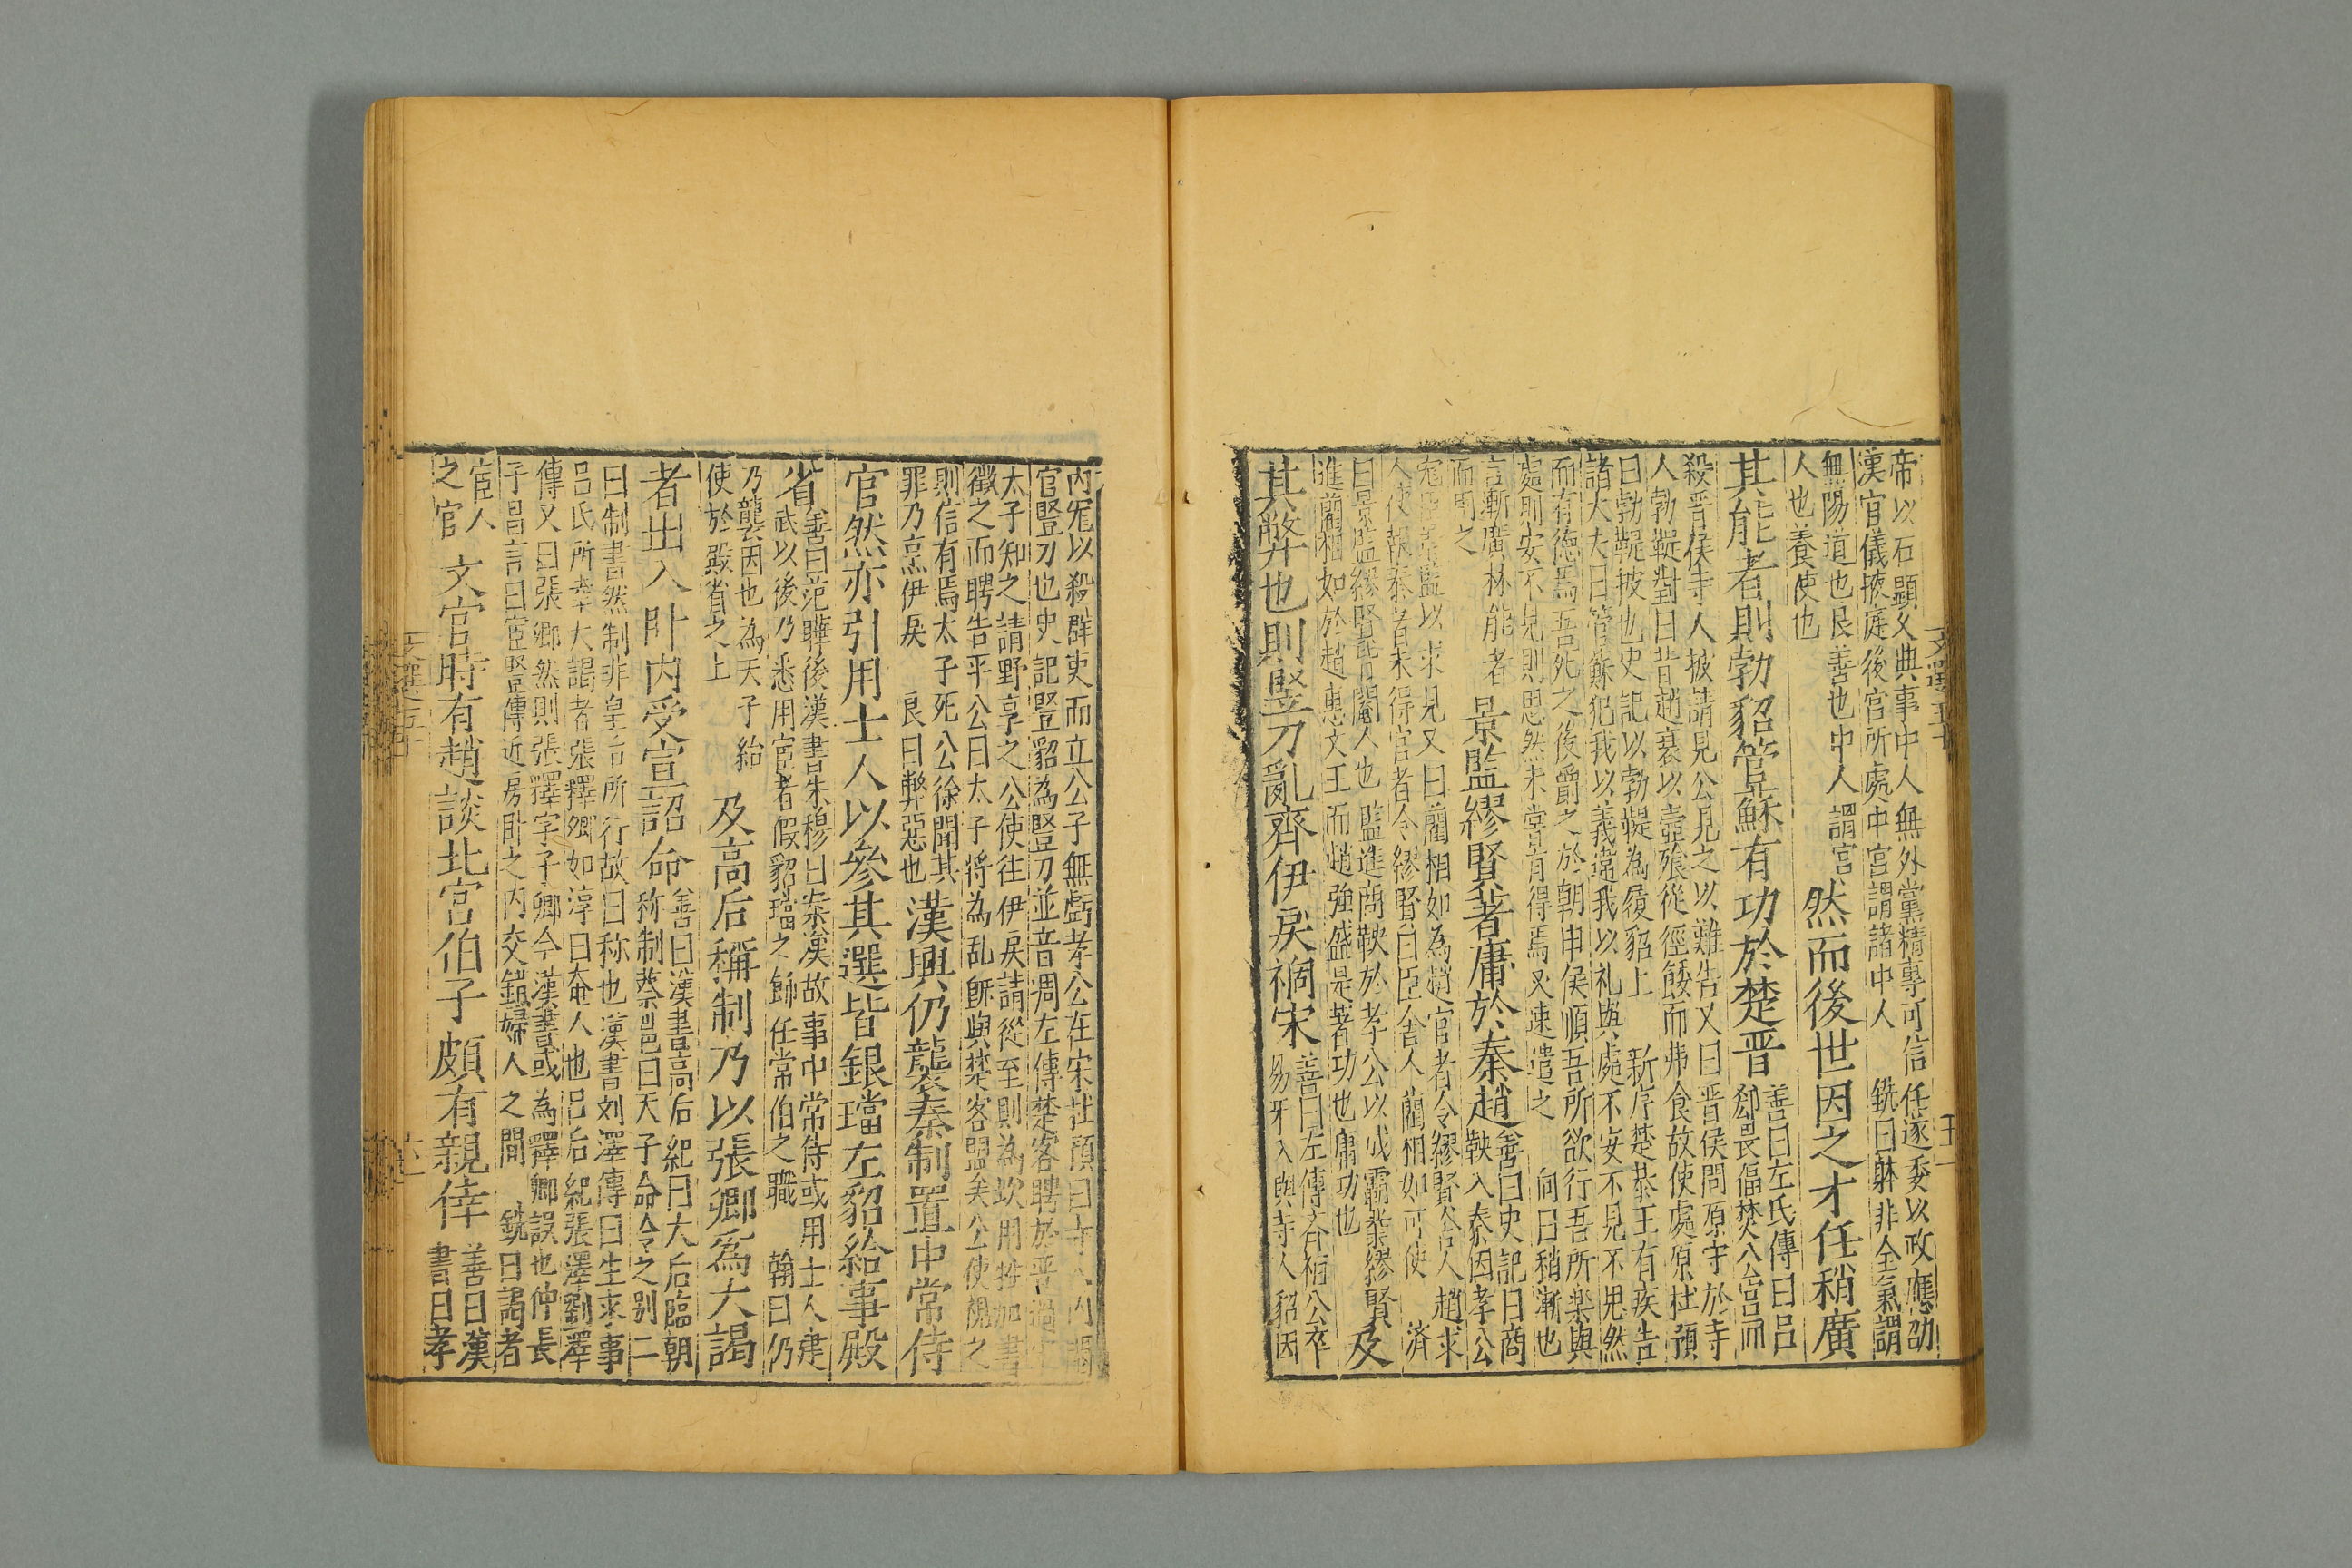 帝以石顯久典事中人無外黨精專可信任遂委以政應劭
漢官儀掖庭後宮所處中宮謂諸中人 銑曰躰非全氣謂
無陽道也良善也中人謂宮
人也養使也
然而後世因之才任稍廣
其能者則勃貂管蘇有功於楚晉
善曰左氏傳曰呂
郄畏偪焚公宮而
殺晉侯寺人披請見公見之以難告又曰晉侯問原守於寺
人勃鞮對曰昔趙衰以壺飱從徑餒而弗食故使處原杜預
曰勃鞮披也史記以勃鞮為履貂上 新序楚恭王有疾告
諸大夫曰管蘇犯我以義違我以礼與處不安不見不思然
而有德焉吾死之後爵之於朝申侯順吾所欲行吾所樂與
處則安不見則思然未嘗有得焉又速遣之 向曰稍漸也
言漸廣林能者
而用之
景監繆賢著庸於秦趙
善曰史記曰商
鞅入秦因孝公
寵臣景監以求見又曰藺相如為趙宦者令繆賢舍人趙求
人使報秦者未得宦者令繆賢曰臣舍人藺相如可使 濟
曰景監繆賢皆閹人也監進商鞅於孝公以成霸業繆賢
進藺相如於趙惠文王而趙強盛是著功也庸功也
及
其弊也則豎刀亂齊伊戾禍宋
善曰左傳齊桓公卒
易牙入與寺人貂因
內寵以殺群吏而立公子無虧孝公在宋杜預曰寺人內閹
官豎刀也史記豎貂為豎刀並音凋左傳楚客聘於晉過宋
太子知之請野享之公使往伊戾請從至則為坎用牲加書
徵之而聘告平公曰太子將為乱旣與楚客盟矣公使視之
則信有焉太子死公徐聞其
罪乃烹伊戾 良曰弊惡也
漢興仍襲秦制置中常侍
官然亦引用士人以參其選皆銀璫左貂給事殿
省
善曰范曄後漢書朱穆曰案漢故事中常侍或用士人建
武以後乃悉用宦者假貂璫之飾任常伯之職 翰曰仍
乃襲因也為天子給
使於殿省之上
及高后稱制乃以張卿爲大謁
者出入臥內受宣詔命
善曰漢書高后紀曰太后臨朝
称制蔡邕曰天子命令之別二
曰制書然制非皇后所行故曰称也漢書刘澤傳曰生求事
呂氏所幸大謁者張釋卿如淳曰奄人也呂后紀張澤劉澤
傳又曰張卿然則張釋字子卿今漢書或為釋卿誤也仲長
子昌言曰宦豎傳近房臥之內交錯婦人之間 銑曰謁者
宦人
之官
文宮時有趙談北宮伯子頗有親倖
善曰漢
書曰孝